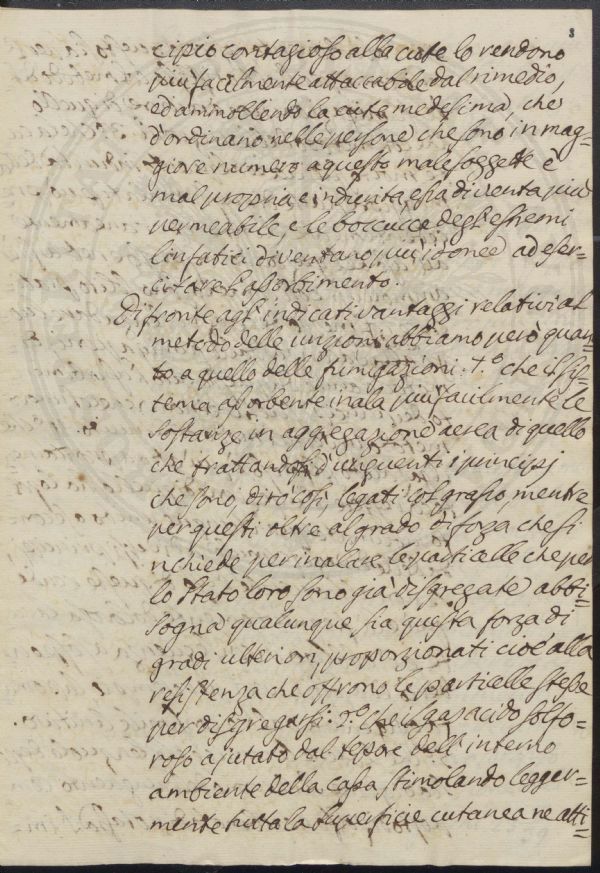 3
cipio contagioso alla cute lo rendono
più facilmente attaccabile dal rimedio,
ed ammollendo la cute medesima, che
d'ordinario nelle persone che sono in mag=
giore numero a questo male soggette è
mal propria e indurita, essa diventa più
permeabile, e le boccucce degl'estremi
linfatici diventano più idonee ad eser=
citare l'assorbimento.
Di fronte agl'indicati vantaggi relativi al
metodo delle unzioni abbiamo però quan=
to a quello delle fumigazioni. 1.° che il sis=
tema assorbente inala più facilmente le
sostanze in aggregazione aerea di quello
che trattandosi d'unguenti i principj
che sono, dirò così, legati col grasso, mentre
per questi oltre al grado di forza che si
richiede per inalare le particelle che per
lo stato loro sono già disgregate abbi=
sogna qualunque sia questa forza di
gradi ulteriori, proporzionati cioè alla
resistenza che offrono le particelle stesse
per disgregarsi. 2.° Che il gas acido solfo=
roso ajutato dal tepore dell'interno
ambiente della cassa stimolando legger=
mente tutta la superficie cutanea ne atti=